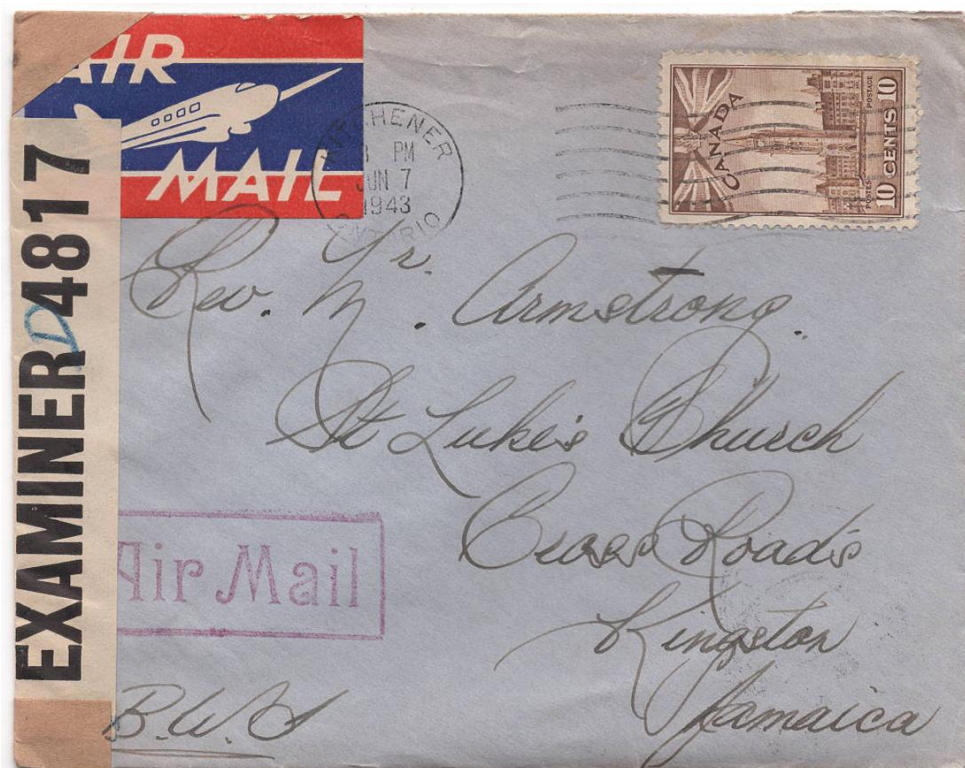 AIR
MAIL
KITCHENER
PM
JUN 7
1943
ONTARIO
CANADA
POSTES POSTAGE
10 CENTS 10
EXAMINER D 4817
Rev. Mr. Armstrong.
St Luke's Church
Cross Road's
Kingston
Jamaica
Air Mail
B.W.I